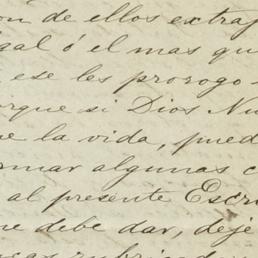 on de ellos extraj
gal ó el mas qu
ese les prorogo
orque si Dios Nu
e la vida, pued
ormar algunas c
al presente Escri
ue debe dar, dejé